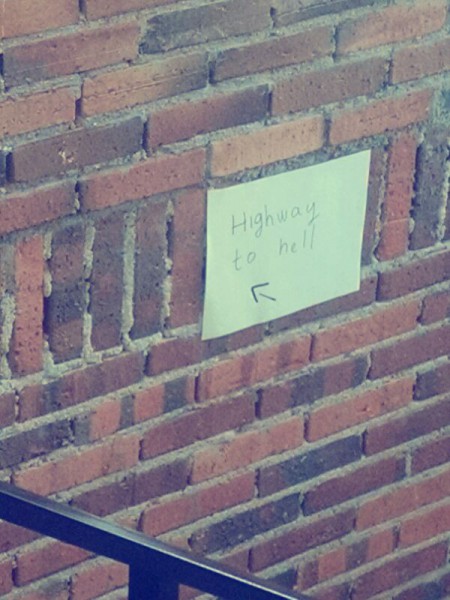 Highway
to hell